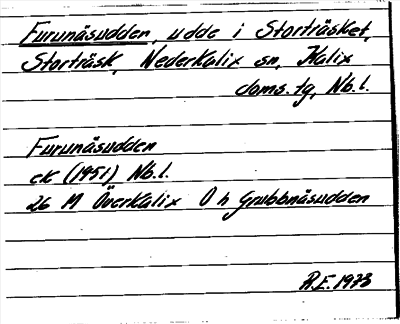 Furunäsudden, udde i Storträsket,
Storträsk, Nederkalix sn, Kalix
doms.tg, Nb.l.
Furunäsudden
ek (1951) Nb.l.
26 M Överkalix Ö h Grubbnäsudden
R.E. 1973